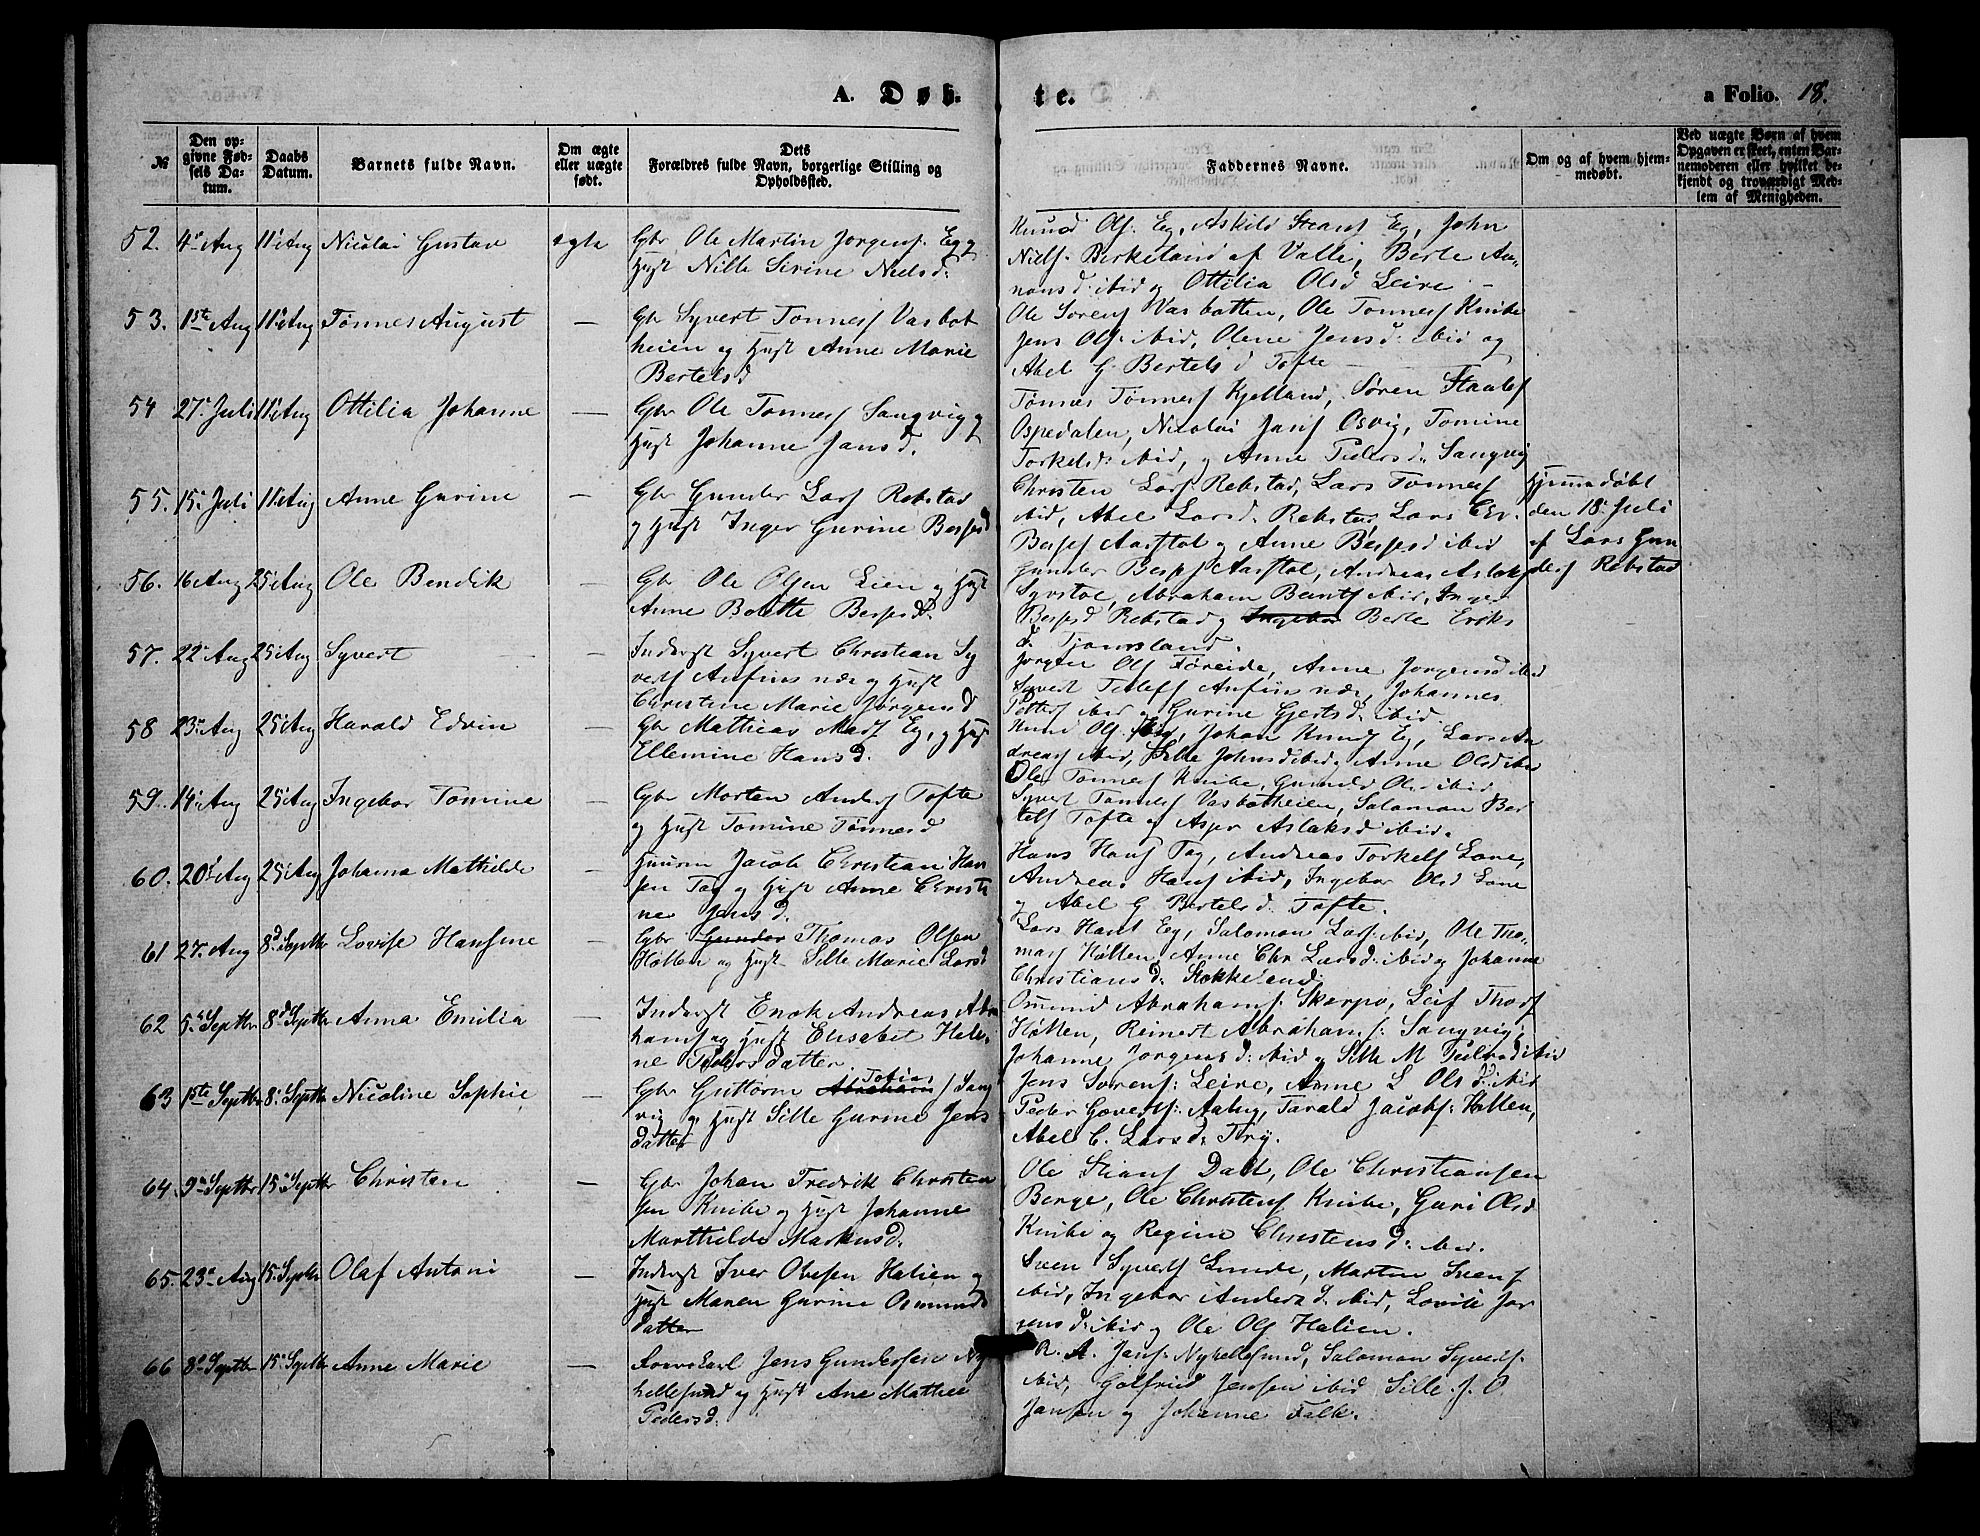 A. Døb-
te.
a Folio. 18.
№
Den opgivne Fødsels Datum.
Daabs Datum.
Barnets fulde Navn.
Om ægte eller uægte født.
Dets Forældres fulde Navn, borgerlige Stilling og Opholdssted.
Faddernes Navne.
Om og af hvem hjemmedøbt.
Ved uægte Børn af hvem Opgaven er skeet, enten Barnemoderen eller hvilket bekjendt og troværdigt Medlem af Menigheden.
52. 4de Aug 11te Aug Nicolai Gustav ægte
Gbr Ole Martin Jørgens: Eg og
Hust Nille Sirine Nielsd:
Knud Ols: Eg, Askild Steans Eg, John
Niels: Birkeland af Valle, Berte
nonsd: ibid og Ottilia Olsd Leire
53. 1ste Aug 11te Aug Tønnes August —
Gbr Syvert Tønness Vasbot
heien og Hust Anne Marie
Bertelsd
Ole Sørens Vasbotten, Ole Tønness Knibe
Jens Ols: ibid, Olene Jensd: ibid og
Abel G. Bertelsd Tofte
54 27de Juli 11te Aug Ottilia Johanne —
Gbr Ole Tønness Sangvig og
Hust Johanne Jansd.
Tønnes Tønness Kjelland, Søren Staales
Ospedalen, Nicolai Jans Osvig, Tomine
Torkelsd: ibid, og Anne Pedersd: Sangvig
55. 15de Juli 11te Aug Anne Gurine —
Gbr Gunder Lars Rebstad
og Hust Inger Gurine Bespesd
Christen Lars Rebstad, Lars Tønness
ibid, Abel Larsd: Rebstad, Lars Chr.
Bespes Aarstol og Anne Bespesd ibid
Hjemmedøbt
den 18de Juli
af Lars Gun
ders Rebstad
56. 16 Aug 25de Aug Ole Bendik —
Gbr Ole Olsen Lien og Hust
Anne Bolette Bespesd:
Gunder Besps Aarstol, Andreas Aslaks
Abraham Bents ibid, Inger
Bespesd Rebstad og Ingebor Berte Eriks
d: Tjomsland.
57. 22de Aug 25de Aug Syvert —
Inderst Syvert Christian Sy
verts Anfinsnæs og Hust
Christine Marie Jørgensd
Jørgen Ols Føreide, Anne Jørgensd ibid
Syvert Tellefs Anfinsnæs, Johannes
ibid og Gurine Gjertsd: ibid.
58 23de Aug 25de Aug Harald Edvin —
Gbr Mathias Mads Eg, og Hust
Ellemine Hansd.
Knud Ols ibid, Johan Knuds Eg, Lars An
dreass ibid, Sille Johnsd ibid og Anne Olsd ibid
59. 14de Aug 25de Aug Ingebor Tomine —
Gbr Morten Anders Tofte
og Hust Tomine Tønnesd
Ole Tønness Knibe, Gunild Olsd ibid
Syvert Tønness Vasbotheien, Salomon Ber
tels Tofte og Asper Aslaksd ibid.
60. 20de Aug 25 Aug Johanna Mathilde —
Huusm Jacob Christian Han
sen Tag og Hust Anne Christi
ne Jensd.
Hans Hans Tag, Andreas Torkels Lone,
Andreas Hans ibid, Ingebor Olsd Lone
og Abel G Bertelsd: Tofte.
61 27. Aug 8de Septbr Lovise Hansine —
Gbr Gunder Thomas Olsen
Høllen og Hust Sille Marie Larsd
Lars Hans Eg, Salomon Lars: ibid, Ole Tho-
mas Høllen, Anne Chr Larsd: ibid og Johanne
Christiansd: Stokkeland.
62 5de Septbr 8de Septbr Anna Emilia —
Inderst Enok Andreas Abra
hams og Hust Elisabet Hele-
ne Pedersdatter.
Ommund Abrahams: Skarpø, Leif Thors
Høllen, Reinert Abrahams: Sangvig,
Johanne Jørgensd: ibid og Sille M. ibid
63 1ste Septbr 8de Septbr Nicoline Sophie —
Gbr Guttorm Abraham Tobias s Sang
vig og Hust Sille Gurine Jens
datter
Jens Sørens: Leire, Anne L Olsd: ibid
Peder Goverts: Aalug, Tarald Jacobs: Høllen,
Abel C. Larsd: Try.
64. 9de Septbr 15de Septbr Christen —
Gbr Johan Fredrik Christen
sen Knibe og Hust Johanne
Marthilde Markusd.
Ole Stians Dalt, Ole Christiansen
Berge, Ole Christens Knibe, Guri Olsd
Knibe og Regine Christensd: ibid.
65. 23de Aug 15. Septbr Olaf Antoni —
Inderst Iver Olesen Hallien og
Hust Maren Gurine Osmunds
datter
Sven Syverts Lunde, Martin Svens
ibid, Ingebor Andersd: ibid, Lovise Jør
gensd: ibid og Ole Ols Halien.
66 8de Septbr 15de Septbr Anne Marie —
Jens Gundersen Ny
hellesund og Hust Ane Mathee
Pedersd:
R. A. Jans: Nyhellesund, Salomon Syverts:
ibid, Gotfried Jensen ibid Sille. J. O
Jansen og Johanne Falk.